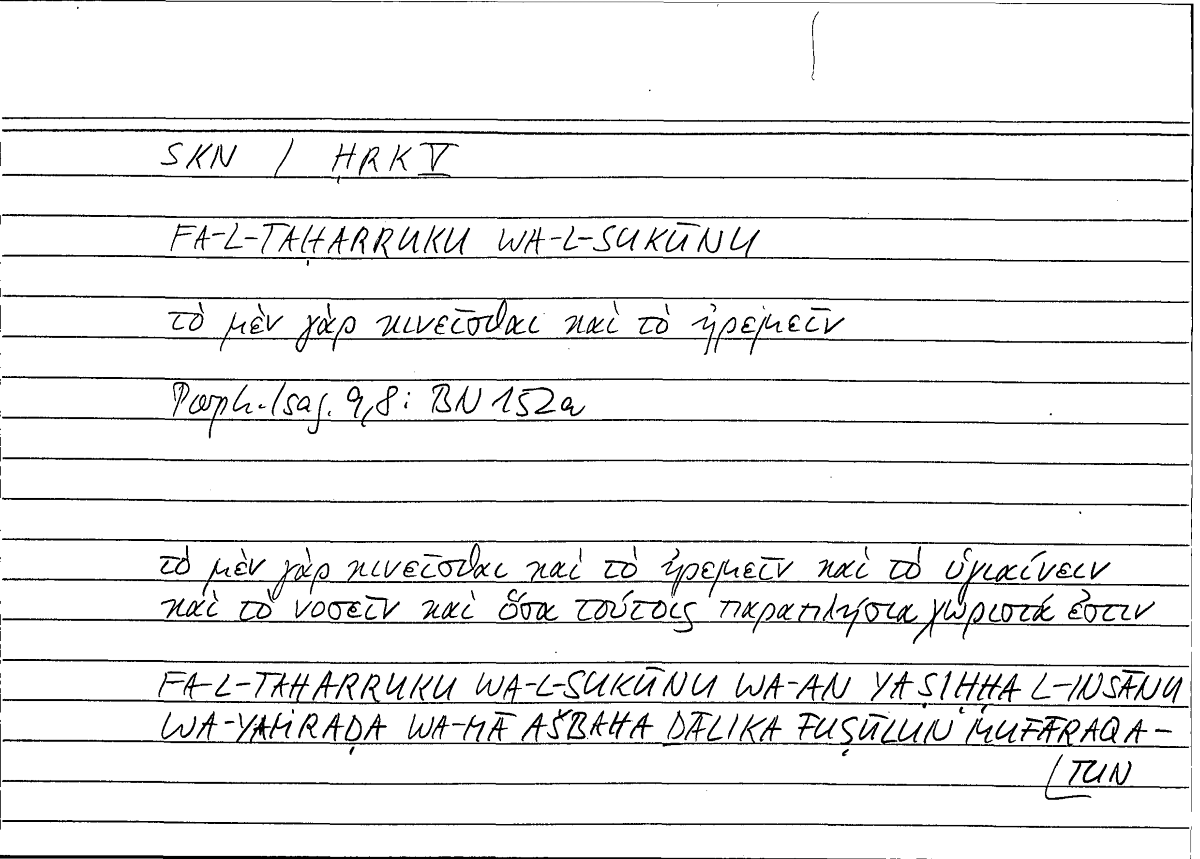 SKN / ḤRK V
FA-L-TAḤARRUKU WA-L-SUKŪNU
τὸ μὲν γὰρ κινεῖσθαι καὶ τὸ ἠρεμεῖν
Porph. Isag. 9,8: BN 152a
τὸ μὲν γὰρ κινεῖσθαι καὶ τὸ ἠρεμεῖν καὶ τὸ ὑγιαίνειν
καὶ τὸ νοσεῖν καὶ ὅσα τούτοις παραπλήσια χωριστά ἐστιν
FA-L-TAHARRUKU WA-L-SUKŪNU WA-AN YAṢIḤḤA L-INSĀNU
WA-YAMRAḌA WA-MĀ AŠBAHA ḎĀLIKA FUṢŪLUN MUFĀRAQA-
TUN